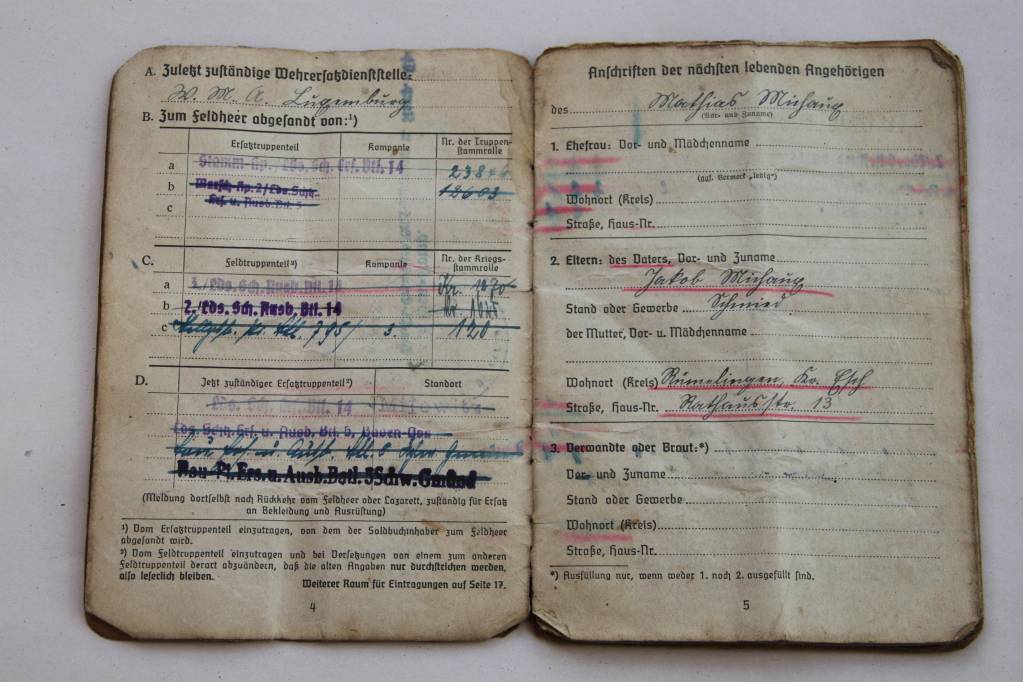 A. Zuletzt zuständige Wehrersatzdienststelle:
W. M. A. Luxemburg
B. Zum Feldheer abgesandt von:¹)
Ersatztruppenteil Kompanie Nr. der Truppen-
stammrolle
a Stamm-Kp. / Lds. Sch. Ers. Btl. 14
b Marsch-Kp. 2/Lds. Schtz. 12603
Ers. u. Ausb. Btl. 5
c
C. Feldtruppenteil²) Kompanie Nr. der Kriegs-
stammrolle
a 1./Lds. Sch. Ausb. Btl. 14
b 2./Lds. Sch. Ausb. Btl. 14
c 3. 120
D. Jetzt zuständiger Ersatztruppenteil²) Standort
Lds. Sch. Ers. Btl. 14
Lds. Sch. Ers. u. Ausb. Btl. 5, Baden-Oos
Bau-Pi. Ers. u. Ausb. Batl. 5 Schw. Gmünd
(Meldung dortselbst nach Rückkehr vom Feldheer oder Lazarett, zuständig für Ersatz
an Bekleidung und Ausrüstung)
¹) Vom Ersatztruppenteil einzutragen, von dem der Soldbuchinhaber zum Feldheer
abgesandt wird.
²) Vom Feldtruppenteil einzutragen und bei Versetzungen von einem zum anderen
Feldtruppenteil derart abzuändern, daß die alten Angaben nur durchstrichen werden,
also leserlich bleiben.
Weiterer Raum für Eintragungen auf Seite 17.
4
Anschriften der nächsten lebenden Angehörigen
des Mathias Michaux
(Vor- und Zuname)
1. Ehefrau: Vor- und Mädchenname
(ggf. Vermerk „ledig")
Wohnort (Kreis)
Straße, Haus-Nr.
2. Eltern: des Vaters, Vor- und Zuname
Jakob Michaux
Stand oder Gewerbe Schmied
der Mutter, Vor- u. Mädchenname
Wohnort (Kreis) Rümelingen, Kr. Esch
Straße, Haus-Nr. Rathausstr. 13
3. Verwandte oder Braut:*)
Vor- und Zuname
Stand oder Gewerbe
Wohnort (Kreis)
Straße, Haus-Nr.
*) Ausfüllung nur, wenn weder 1. noch 2. ausgefüllt sind.
5